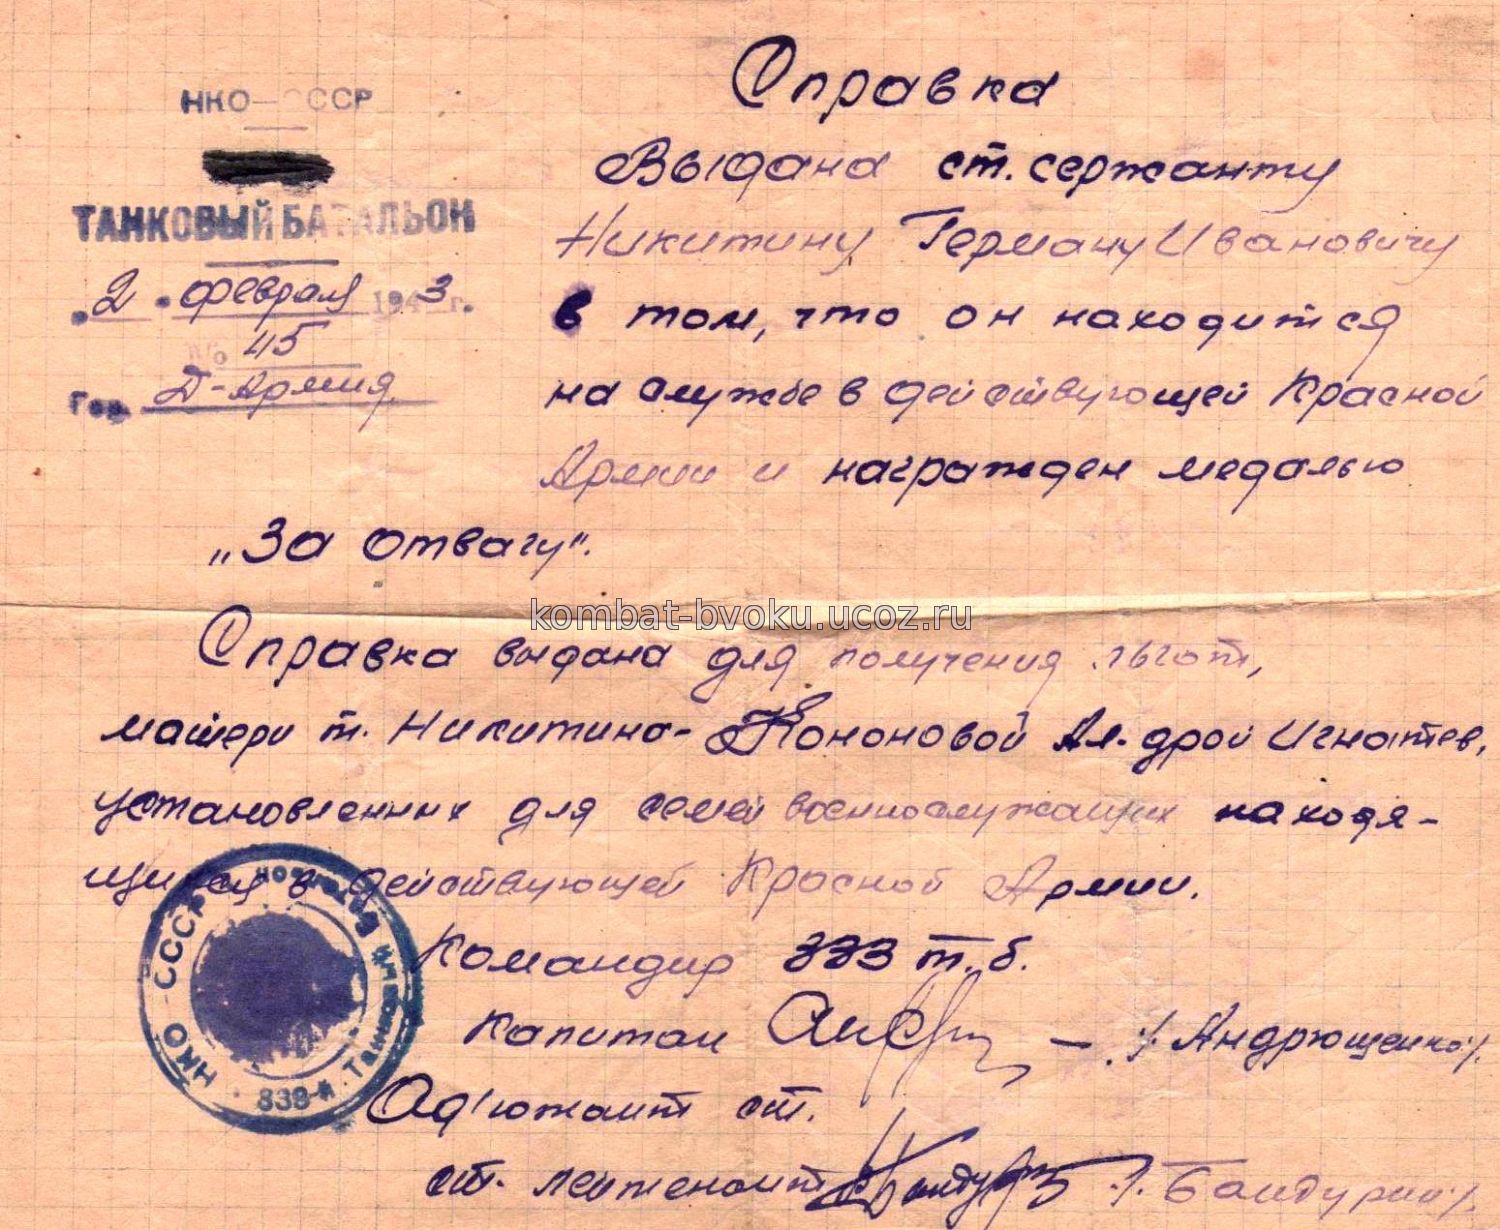 НКО СССР
ТАНКОВЫЙ БАТАЛЬОН
"2" февраля 1943 г.
№ 45
Гор. Д-Армия
Справка
Выдана ст. сержанту
Никитину Герману Ивановичу
в том, что он находится
на службе в действующей Красной
Армии и награжден медалью
„За отвагу".
kombat-bvoku.ucoz.ru
Справка выдана для получения льгот,
матери т. Никитина - Кононовой Ал-дрой Игнатев,
установленных для семей военнослужащих находя-
щихся в действующей Красной Армии.
Командир 333 т.б.
Капитан — /Андрющенко/.
Адъютант ст.
ст. лейтенант
НКО СССР Танковый батальон